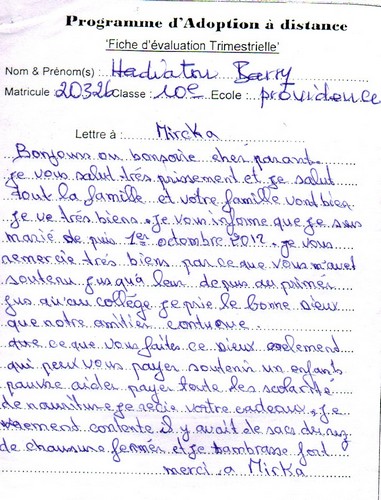 Programme d'Adoption à distance
'Fiche d'évaluation Trimestrielle'
Nom & Prénom(s) : Hadiatou Barry
Matricule 20326 Classe : 10e Ecole : providence
Lettre à : Mircka
Bonjours ou bonsoire cher parant
je vous salut trés puissement et je salut
tout la famille et votre famille vont bien
je ve trés biens. je vous informe que je suis
marié de puis 1er octombre 2012. je vous
remercie trés biens par ce que vous m'avet
soutenu jusqu'à leur depuis au primer
jus qu'au collége je prie le bonne dieux
que notre amitier continue.
que ce que vous faites ce dieux
qui peux vous payer soutenir un enfants
pauvre aider payer toute les scolarité
de nourriture je recie votre cadeaux. je
contente il y avait de sacs du riz
de chaussure fermés et je tambrasse fort
merci a Mirka